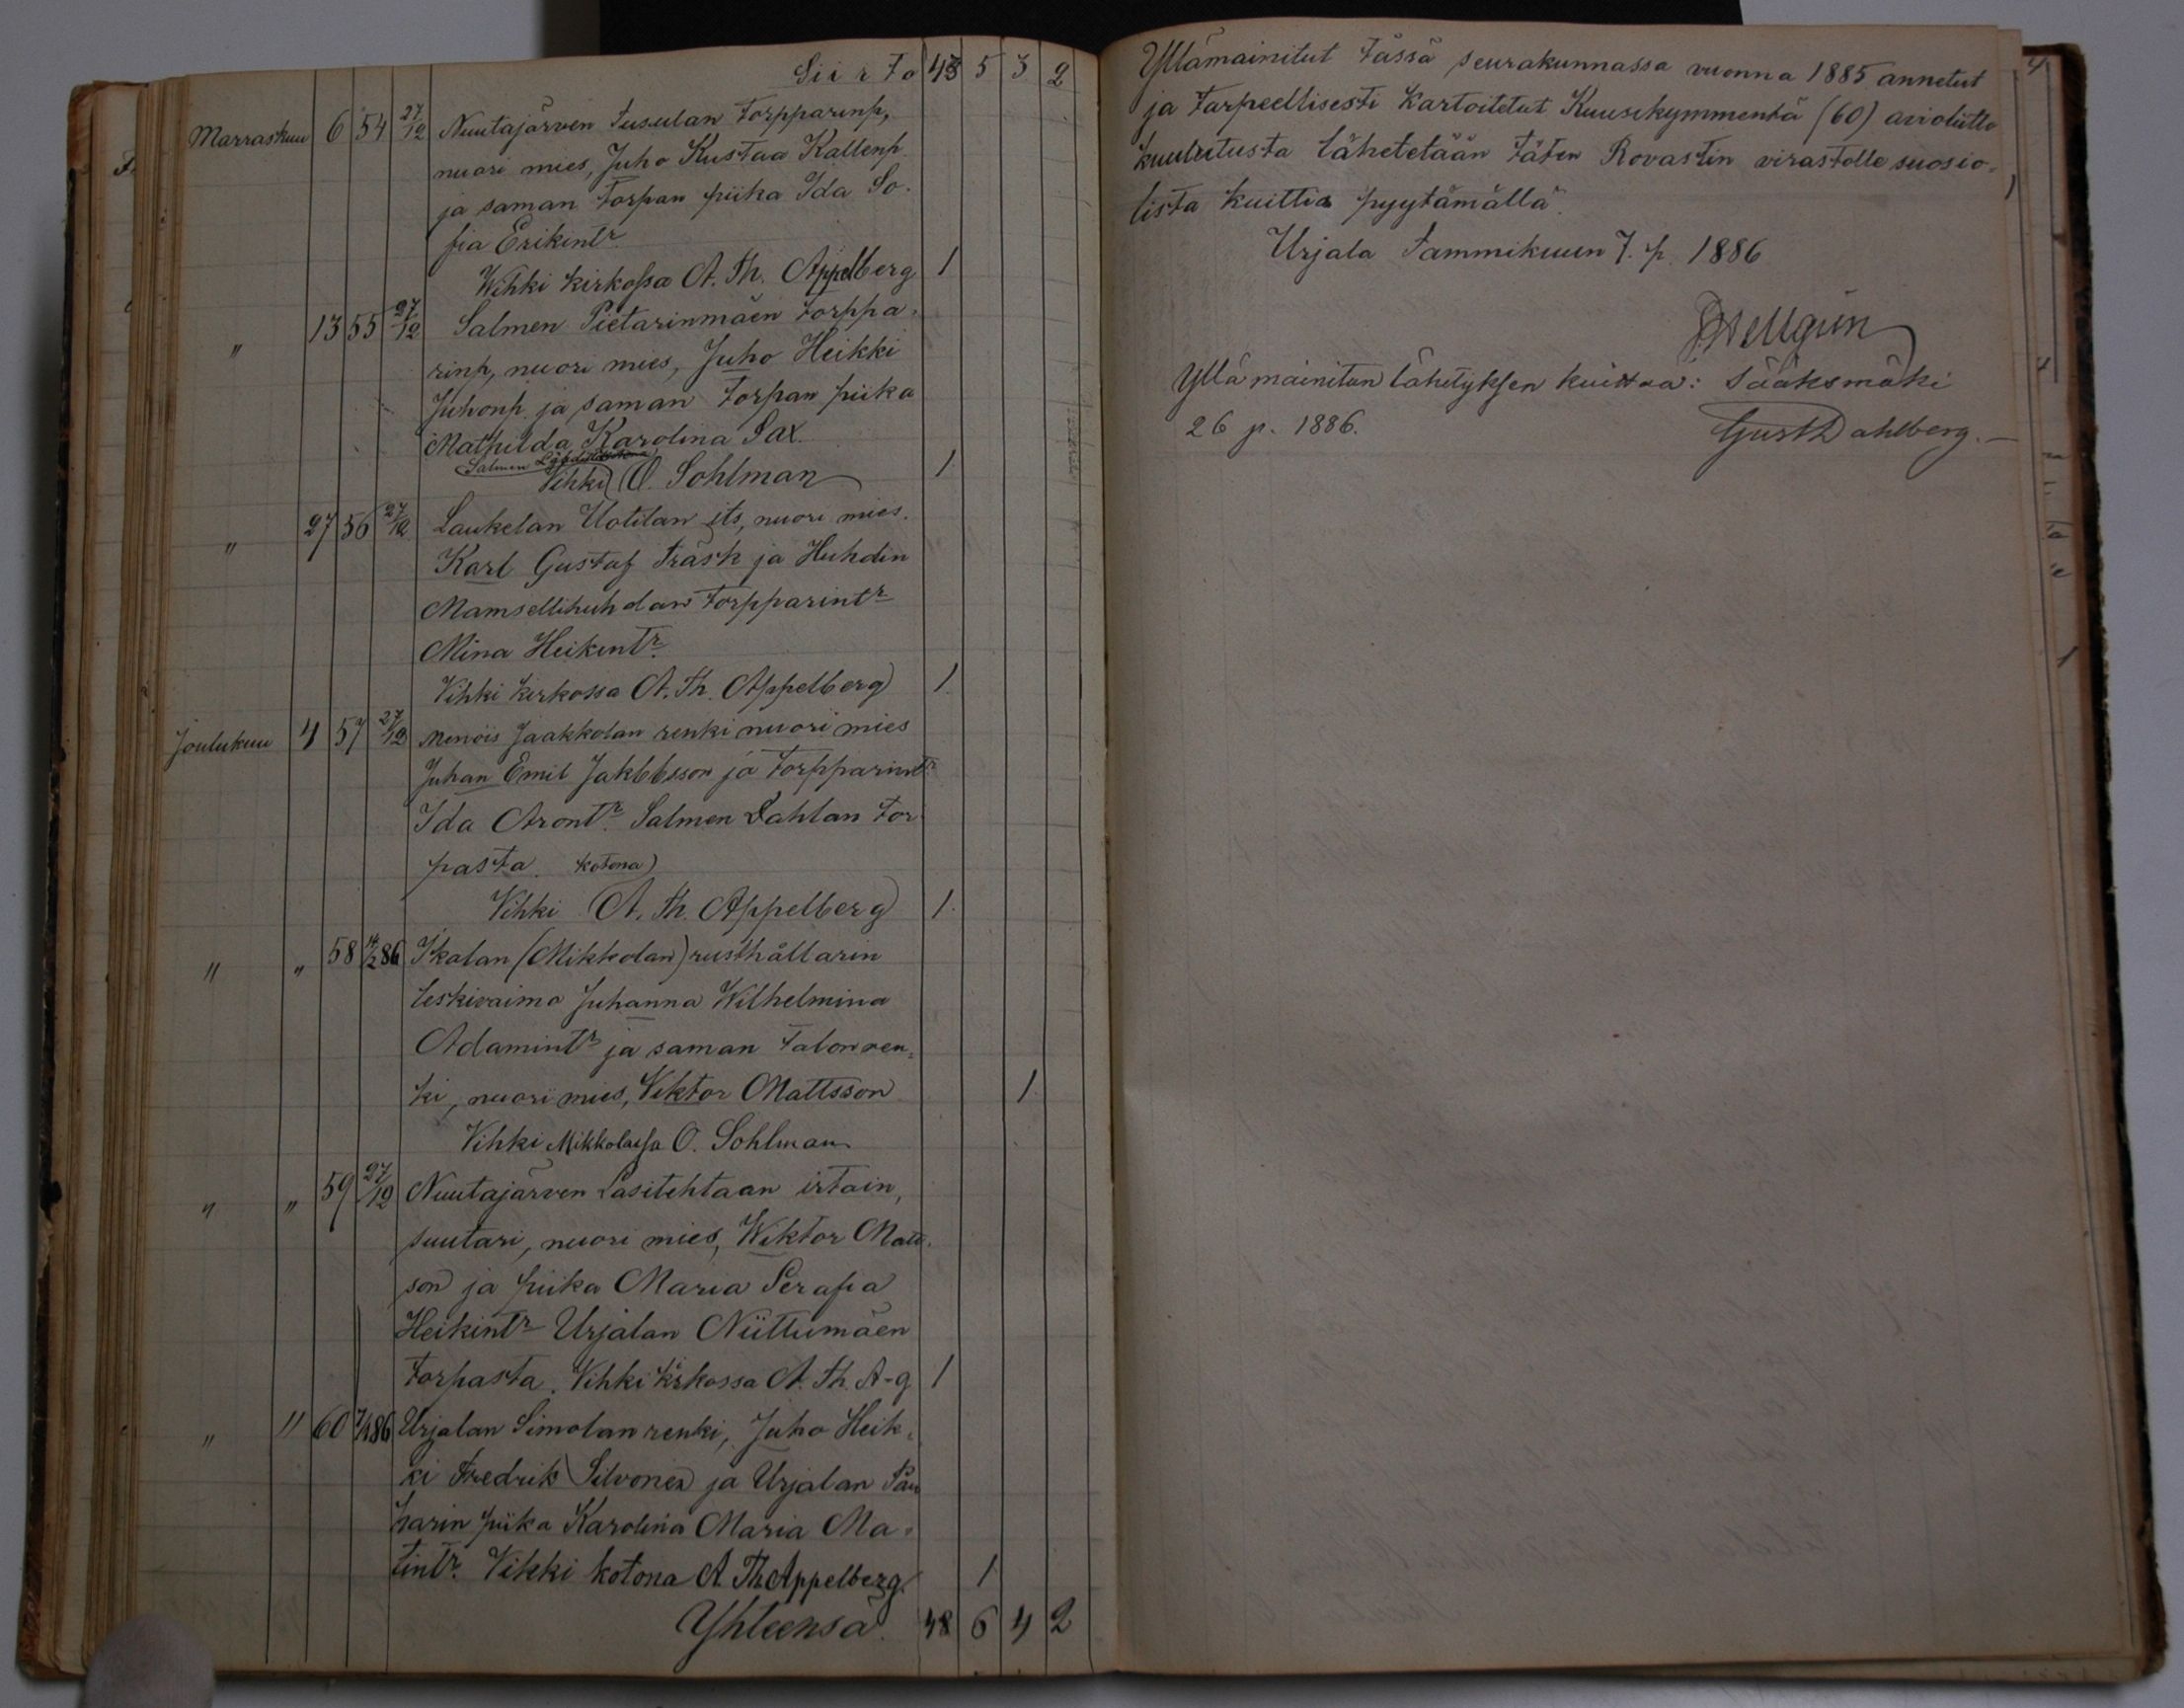 Siirto 43 5 3 2
Marraskuu 6 54 27/12 Nuutajärven Susulan torpparinp,
nuori mies, Juho Kustaa Kallenp
ja saman torpan piika Ida So-
fia Erikintr
Wihki kirkossa A. Th. Appelberg 1
" 13 55 27/12 Salmen Pietarinmäen torppa-
rinp, nuori mies, Juho Heikki
Juhonp. ja saman torpan piika
Mathilda Karolina Sax.
Salmen
Vihki O. Sohlman 1
" 27 56 27/12 Laukelan Uotilan its, nuori mies.
Karl Gustaf Träsk ja Huhdin
Mamsellihuhdan torpparintr
Mina Heikintr.
Vihki kirkossa A. Th. Appelberg 1
Joulukuu 4 57 27/12 Menöis Jaakkolan renki nuori mies
Juhan Emil Jakobsson ja torpparintr
Ida Arontr. Salmen Lahlan tor-
pasta. kotona
Vihki A. Th. Appelberg 1.
" " 58 14/2 86 Ikalan (Mikkolan) rusthållarin
leskivaimo Juhanna Wilhelmina
Adamintr ja saman talon ren-
ki, nuori mies, Viktor Mattsson 1
Vihki Mikkolassa O. Sohlman
" " 59 27/12 Nuutajärven Lasitehtaan irtain,
suutari, nuori mies, Wiktor Matt-
son ja piika Maria Serafia
Heikintr Urjalan Niittumäen
torpasta. Vihki kirkossa A. Th. A-g 1
" " 60 7/1 86 Urjalan Simolan renki, Juho Heik-
ki Fredrik Silvonen ja Urjalan
piika Karolina Maria Ma-
tintr. Vihki kotona A. Th. Appelberg. 1
Yhteensä. 48 6 4 2
Yllämainitut tässä seurakunnassa vuonna 1885 annetut
ja tarpeellisesti kartoitetut Kuusikymmentä (60) avioliitto
kuulutusta lähetetään täten Rovastin virastolle suosio-
lista kuittia pyytämällä.
Urjala Tammikuun 7. p. 1886
Yllämainitun lähetyksen kuittaa: Sääksmäki
26 p. 1886. Gust Dahlberg.